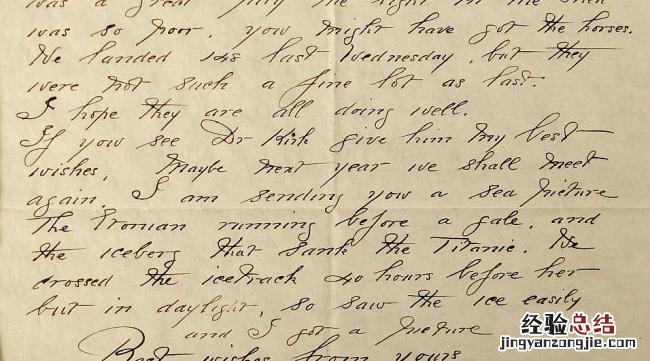 was a great pity the light in the
was so poor, you might have got the horses.
We landed 148 last Wednesday, but they
were not such a fine lot as last.
I hope they are all doing well.
If you see Dr Kirk give him my best
wishes, Maybe next year we shall meet
again. I am sending you a sea picture
The Etonian running before a gale, and
the iceberg that sank the Titanic. We
crossed the ice track 40 hours before her
but in daylight, so saw the ice easily
and I got a picture
Best wishes from yours
经验总结
jingyanzongjie.com